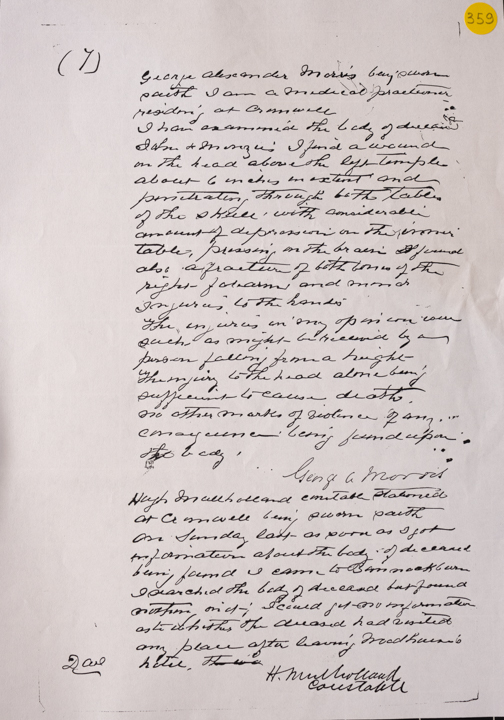 359
(7)
George Alexander Morris being sworn
saith I am a medical practitioner
residing at Cromwell
I have examined the body of deceased
John I find a wound
on the head above the left temple
about 6 inches in extent and
penetrating through both tables
of the skull with considerable
amount of depression on the inner
table, pressing on the brain I found
also a fracture of both bones of the
right forearm and minor
injuries to the hands
The injuries in my opinion were
such as might be received by a
person falling from a height
The injury to the head alone being
sufficient to cause death.
no other marks of violence of any
consequence being found upon
the body.
George A Morris
Hugh Mulholland constable stationed
at Cromwell being sworn saith
on Sunday last as soon as I got
information about the body of deceased
being found I came to Bannockburn
I searched the body of deceased but found
nothing on it; I could get no information
as to whether the deceased had visited
any place after leaving
hotel,
H. Mulholland
Constable